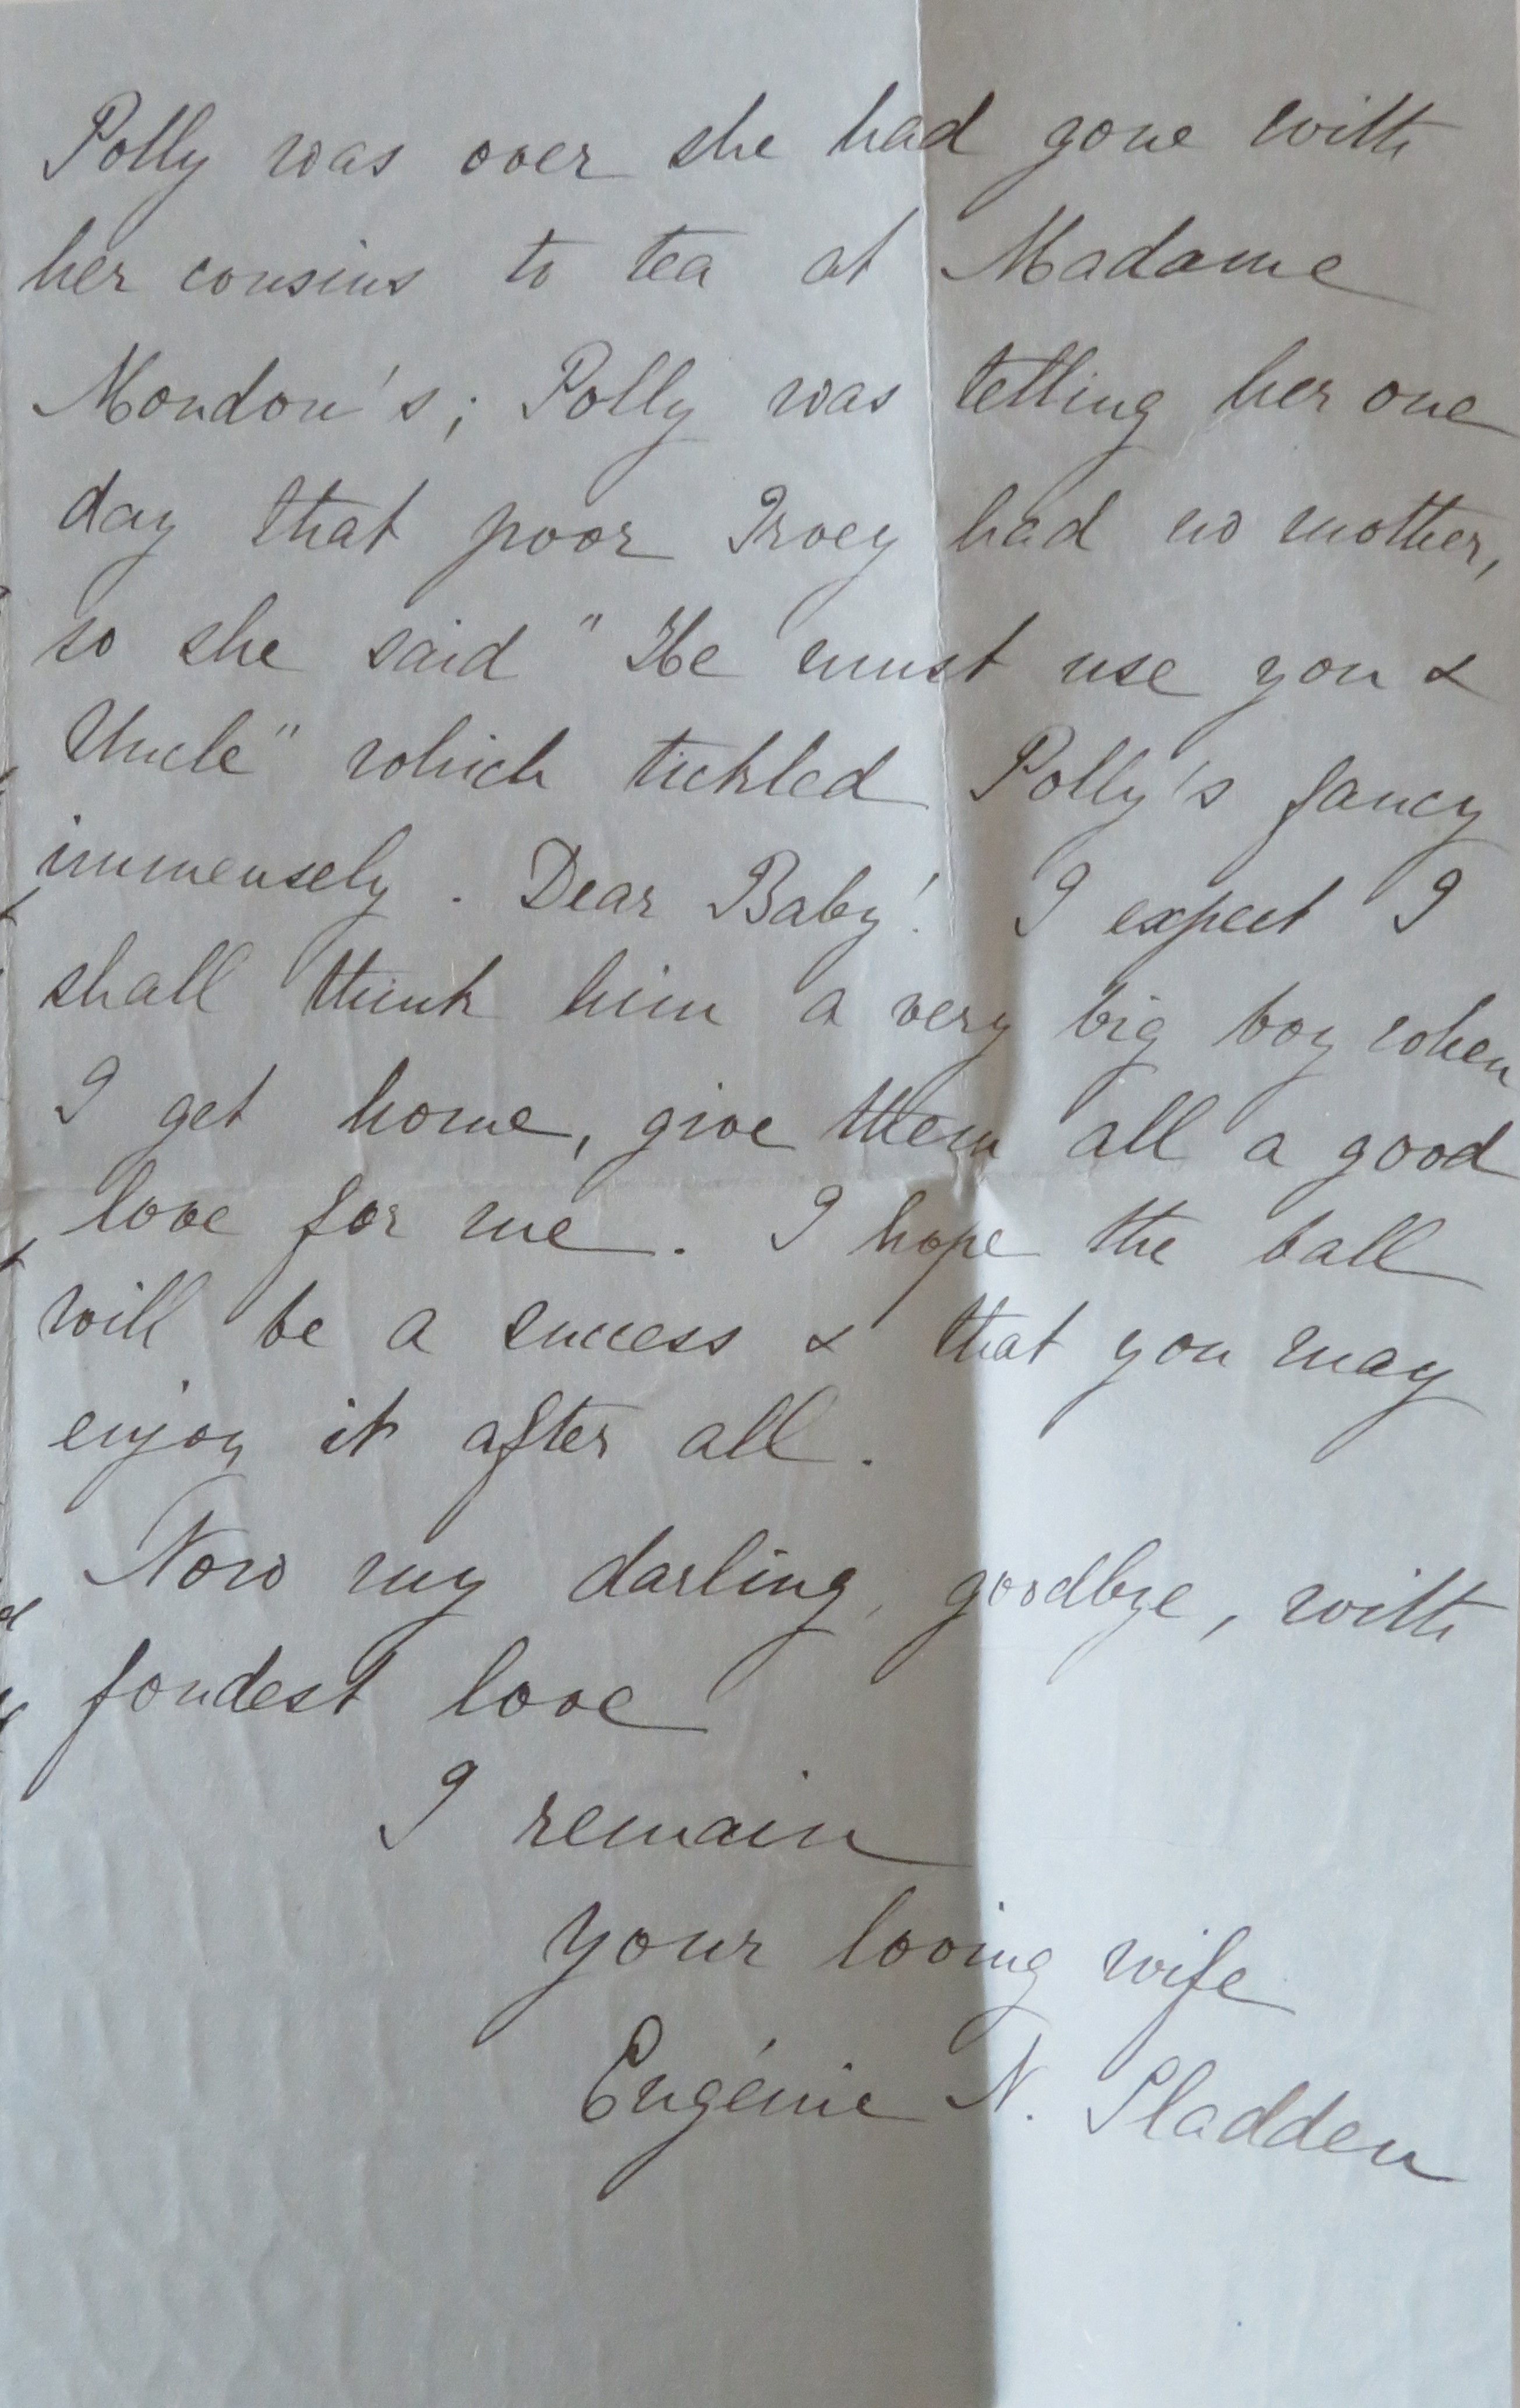 Polly was over she had gone with
her cousins to tea at Madame
Mondon's; Polly was telling her one
day that poor Irvey had no mother,
so she said "He must use you &
Uncle" which tickled Polly's fancy
immensely. Dear Baby! I expect I
shall think him a very big boy when
I get home, give them all a good
love for me. I hope the ball
will be a success & that you may
enjoy it after all.
Now my darling, goodbye, with
fondest love
I remain
your loving wife
Eugénie N. Sladden